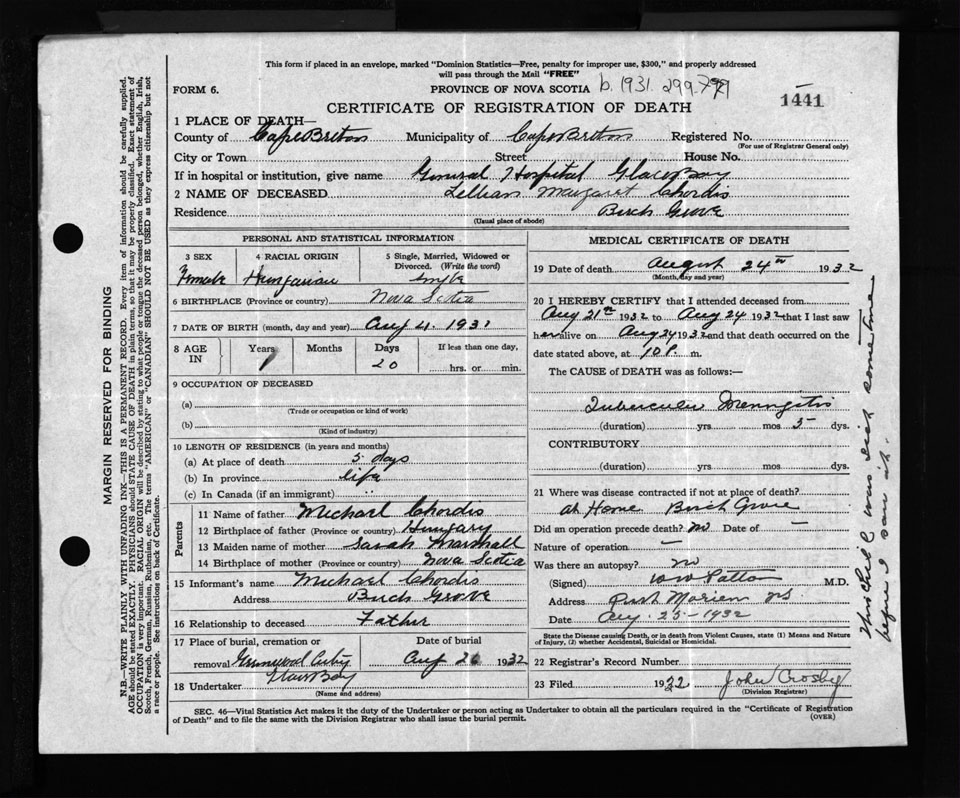 This form if placed in an envelope, marked "Dominion Statistics—Free, penalty for improper use, $300," and properly addressed
will pass through the Mail "FREE"
FORM 6.
PROVINCE OF NOVA SCOTIA b. 1931. 299.
1441
CERTIFICATE OF REGISTRATION OF DEATH
1 PLACE OF DEATH—
County of Cape Breton Municipality of Cape Breton Registered No.
(For use of Registrar General only)
City or Town Street House No.
If in hospital or institution, give name General Hospital Glace Bay
2 NAME OF DECEASED Lillian Margaret Chordis
Residence Birch Grove
(Usual place of abode)
PERSONAL AND STATISTICAL INFORMATION
3 SEX 4 RACIAL ORIGIN 5 Single, Married, Widowed or
Divorced. (Write the word)
Female Hungarian Single
6 BIRTHPLACE (Province or country) Nova Scotia
7 DATE OF BIRTH (month, day and year) Aug 4 1931
8 AGE IN Years Months Days If less than one day,
1 20 hrs. or min.
9 OCCUPATION OF DECEASED
(a)
(Trade or occupation or kind of work)
(b)
(Kind of industry)
10 LENGTH OF RESIDENCE (in years and months)
(a) At place of death 5 days
(b) In province life
(c) In Canada (if an immigrant) "
Parents
11 Name of father Michael Chordis
12 Birthplace of father (Province or country) Hungary
13 Maiden name of mother Sarah Marshall
14 Birthplace of mother (Province or country) Nova Scotia
15 Informant's name Michael Chordis
Address Birch Grove
16 Relationship to deceased Father
17 Place of burial, cremation or Date of burial
removal Greenwood Aug 26 1932
Glace Bay
18 Undertaker
(Name and address)
MEDICAL CERTIFICATE OF DEATH
19 Date of death August 24th 1932
(Month, day and year)
20 I HEREBY CERTIFY that I attended deceased from
Aug 21st 1932 to Aug 24 1932 that I last saw
her alive on Aug 24 1932 and that death occurred on the
date stated above, at 10 P. m.
The CAUSE of DEATH was as follows:—
Tubercular Meningitis
(duration) yrs mos 5 dys.
CONTRIBUTORY
(duration) yrs. mos. dys.
21 Where was disease contracted if not at place of death?
at Home Birch Grove
Did an operation precede death? no Date of —
Nature of operation —
Was there an autopsy? no
(Signed) W W Patton M.D.
Address Port Morien NS
Date Aug. 25-1932
State the Disease causing Death, or in death from Violent Causes, state (1) Means and Nature
of Injury, (2) whether Accidental, Suicidal or Homicidal.
22 Registrar's Record Number
23 Filed 1932 John Crosby
(Division Registrar)
SEC. 46—Vital Statistics Act makes it the duty of the Undertaker or person acting as Undertaker to obtain all the particulars required in the "Certificate of Registration
of Death" and to file the same with the Division Registrar who shall issue the burial permit.
(OVER)
MARGIN RESERVED FOR BINDING
N.B.—WRITE PLAINLY WITH UNFADING INK—THIS IS A PERMANENT RECORD. Every item of information should be carefully supplied.
AGE should be stated EXACTLY. PHYSICIANS should STATE CAUSE OF DEATH in plain terms, so that it may be properly classified. Exact statement of
OCCUPATION is very important. RACIAL ORIGIN will be described by stating to what people or tongue the deceased person belonged, whether English, Irish,
Scotch, French, German, Russian, Ruthenian, etc. The terms "AMERICAN" or "CANADIAN" SHOULD NOT BE USED as they express citizenship but not
a race or people. See instructions on back of Certificate.
This child was sick sometime
before I saw it.